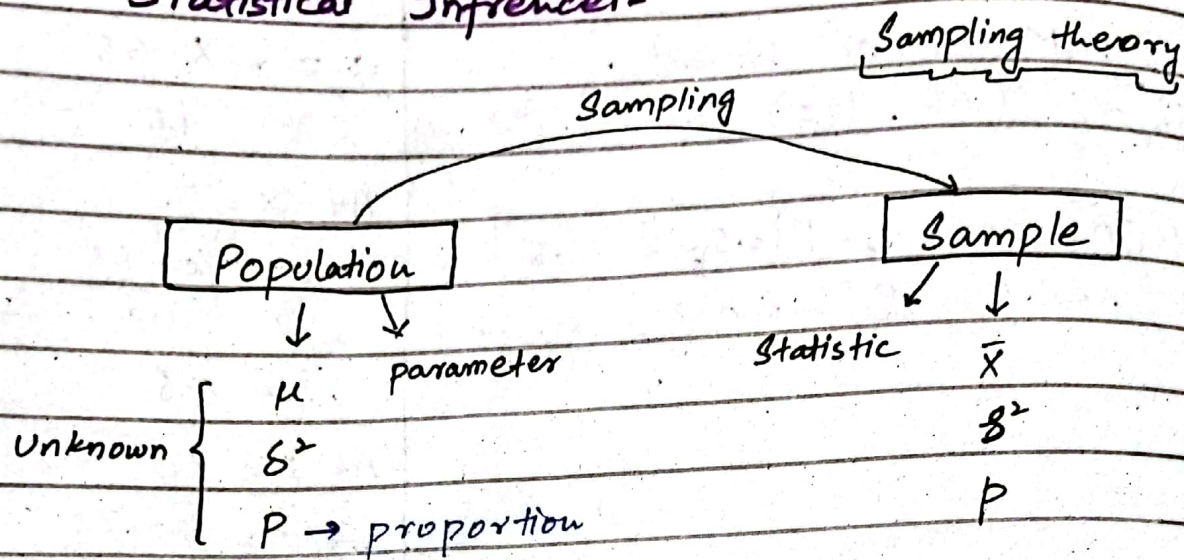 Statistical Inference:-
Sampling theory
Sampling
Population
Sample
parameter
Statistic
x̄
μ
Unknown
δ²
s²
P → proportion
p